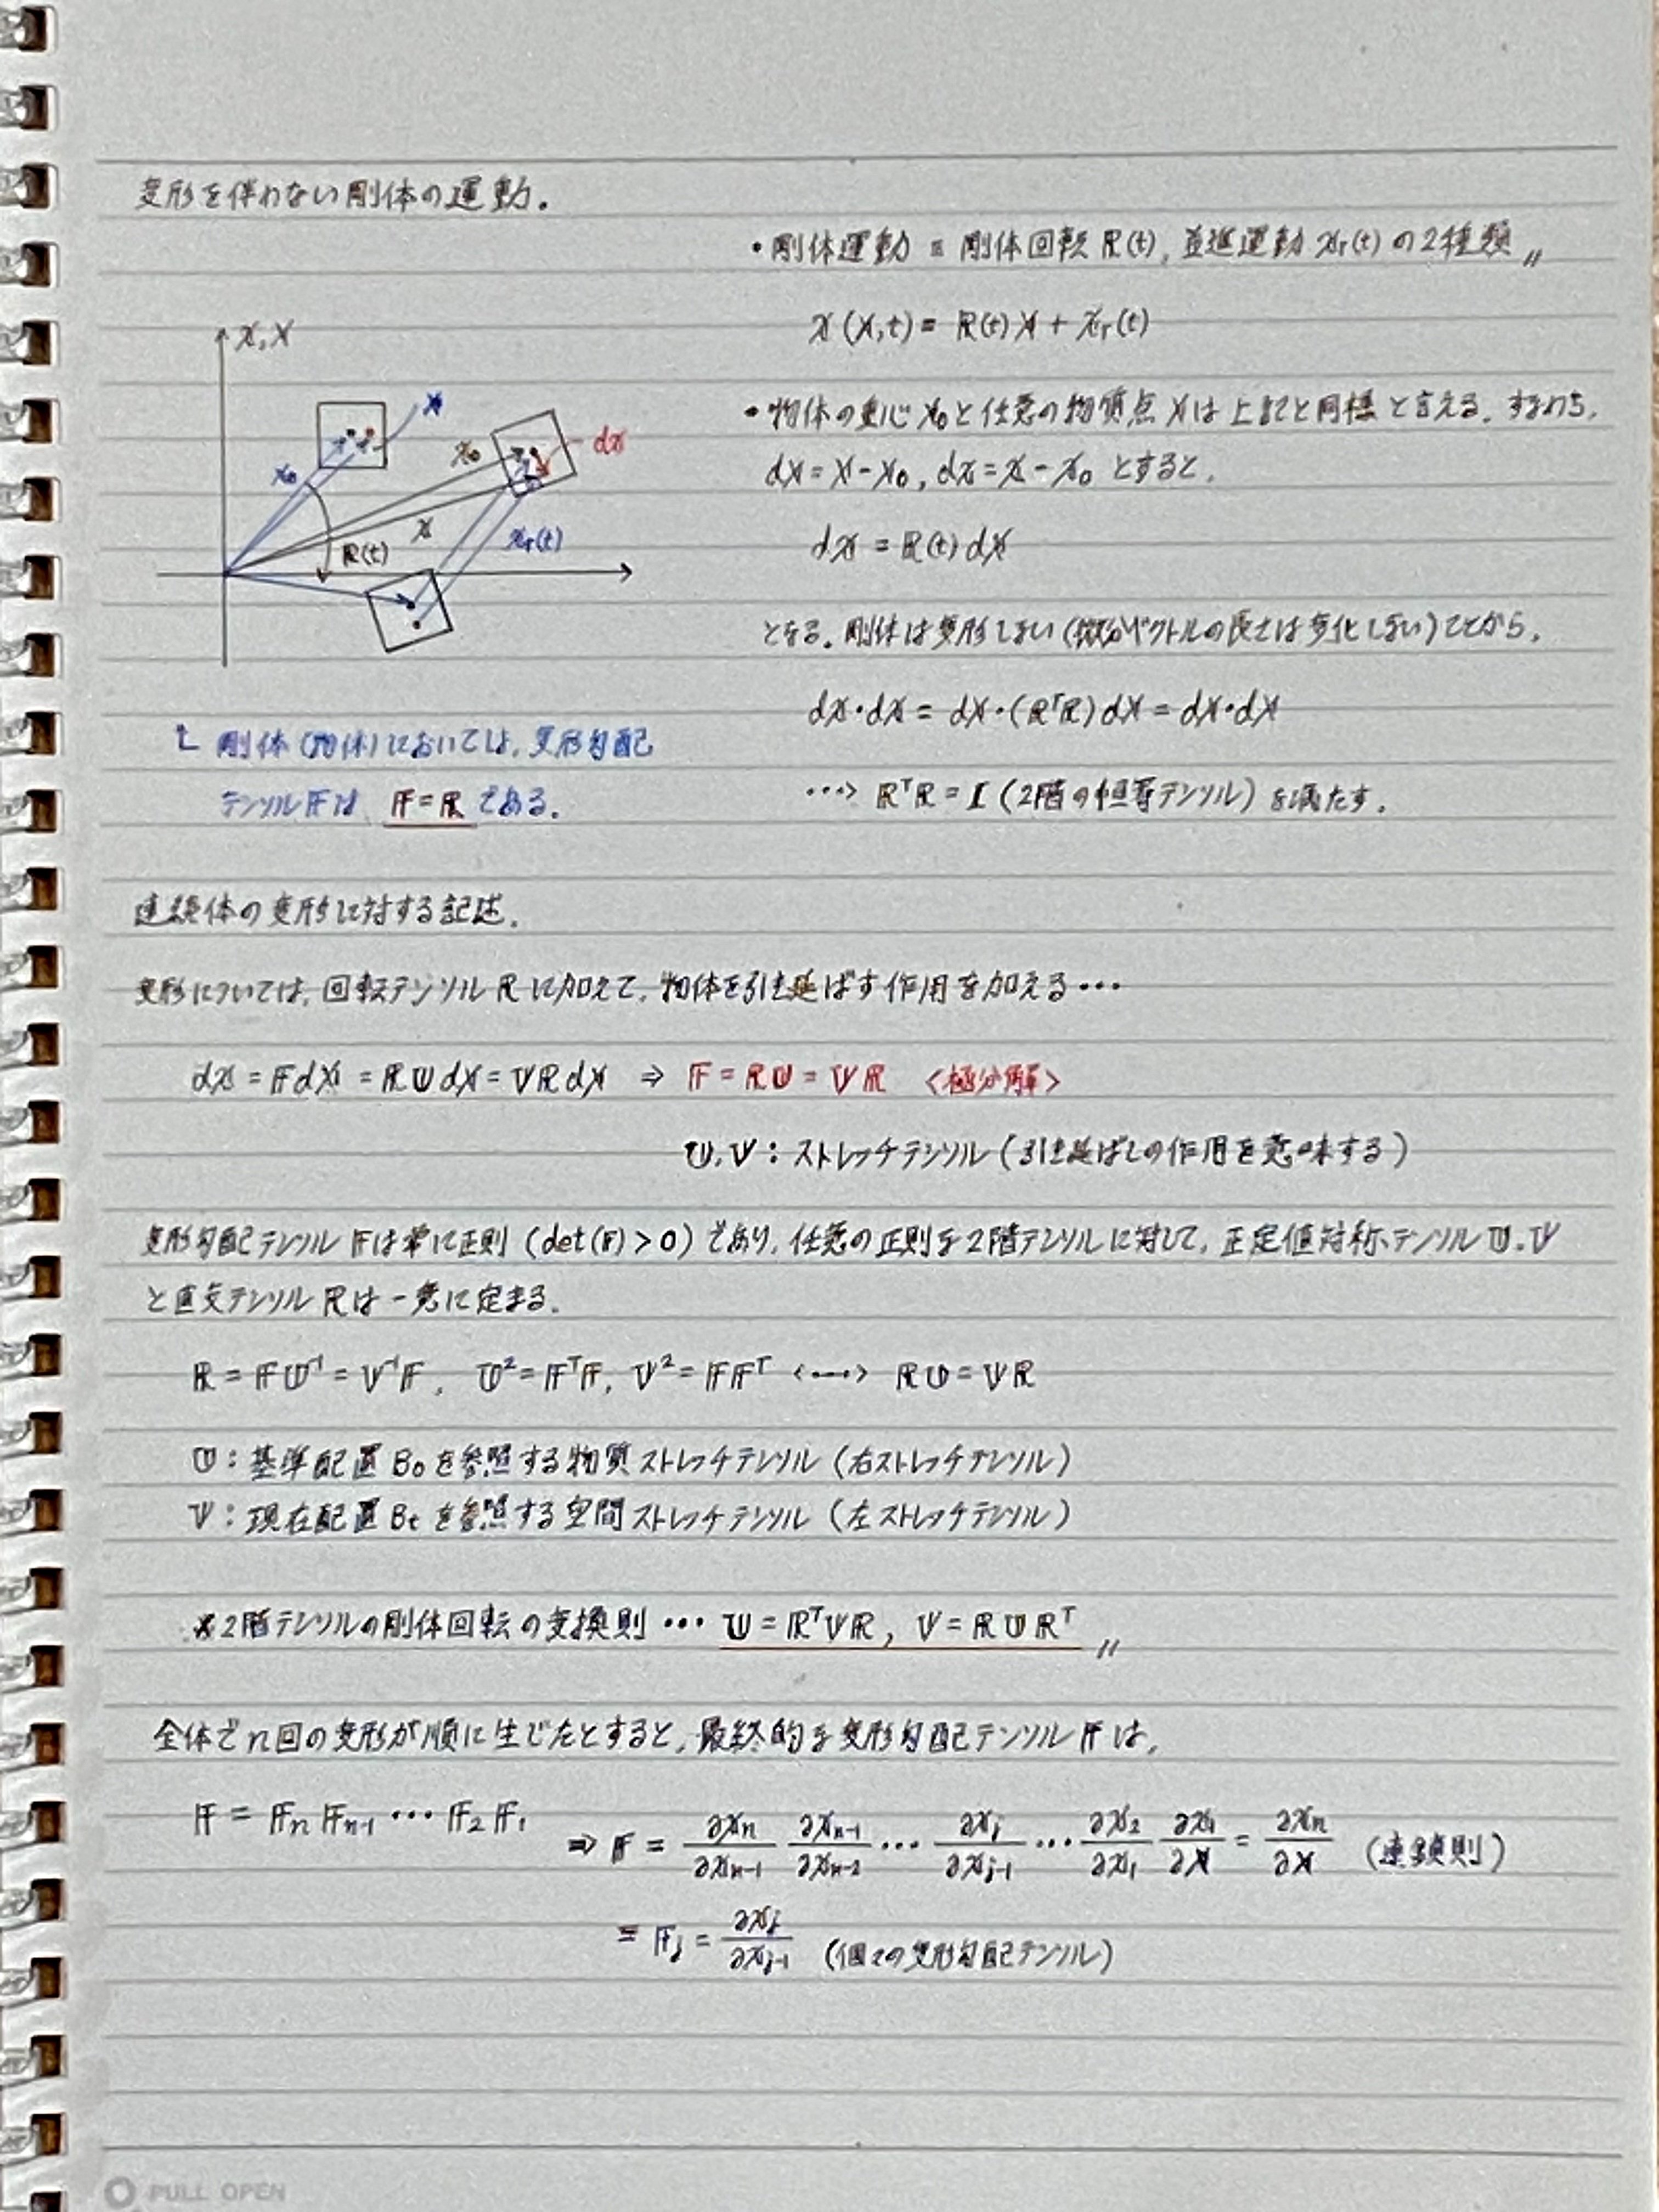 変形を伴わない剛体の運動.
・剛体運動 = 剛体回転 R(t), 並進運動 xr(t) の2種類〃
x (X,t) = R(t) X + xr(t)
x, X
X
x0
dx
X0
x
R(t)
xr(t)
・物体の重心 X0 と任意の物質点 X は上記と同様と言える. すなわち,
dX = X - X0, dx = x - x0 とすると,
dx = R(t) dX
となる. 剛体は変形しない (微分ベクトルの長さは変化しない) ことから,
dx・dx = dX・(RᵀR) dX = dX・dX
剛体 (物体) においては, 変形勾配
テンソル F は F = R である.
…> RᵀR = I (2階の恒等テンソル) を満たす.
連続体の変形に対する記述.
変形については, 回転テンソル R に加えて, 物体を引き延ばす作用を加える…
dx = F dX = R U dX = V R dX ⇒ F = R U = V R <極分解>
U, V : ストレッチテンソル (引き延ばしの作用を意味する)
変形勾配テンソル F は常に正則 (det(F) > 0) であり, 任意の正則な2階テンソルに対して, 正定値対称テンソル U, V
と直交テンソル R は一意に定まる.
R = F U⁻¹ = V⁻¹ F, U² = FᵀF, V² = F Fᵀ <…> R U = V R
U : 基準配置 B0 を参照する物質ストレッチテンソル (右ストレッチテンソル)
V : 現在配置 Bt を参照する空間ストレッチテンソル (左ストレッチテンソル)
※2階テンソルの剛体回転の変換則 … U = RᵀV R, V = R U Rᵀ 〃
全体で n 回の変形が順に生じたとすると, 最終的な変形勾配テンソル F は,
F = Fn Fn-1 … F2 F1 ⇒ F = ∂xn/∂xn-1 ∂xn-1/∂xn-2 … ∂xj/∂xj-1 … ∂x2/∂x1 ∂x1/∂X = ∂xn/∂X (連鎖則)
= Fj = ∂xj/∂xj-1 (個々の変形勾配テンソル)
PULL OPEN